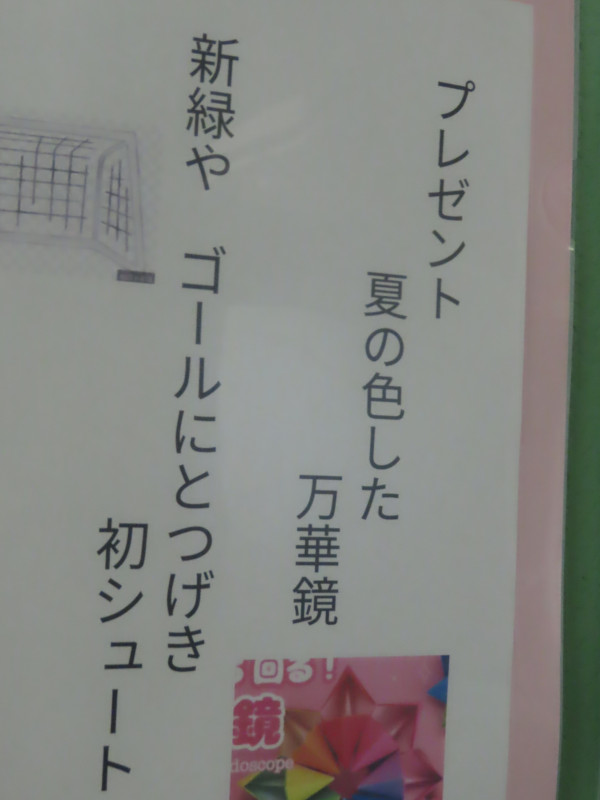 プレゼント
夏の色した
万華鏡
新緑や ゴールにとつげき
初シュート
回る!
鏡
doscope